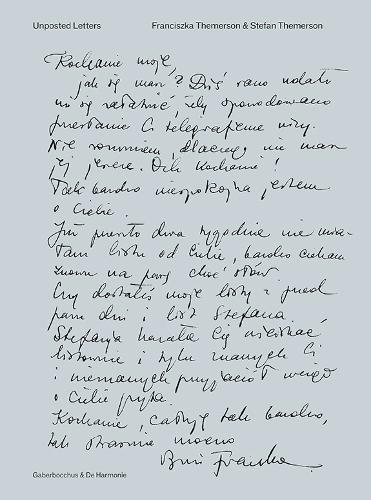 Unposted Letters Franciszka Themerson & Stefan Themerson
Kochanie moje,
jak się masz? Dziś rano udało
mi się załatwić, żeby spowodowano
przesłanie Ci telegrafem wizy.
Nie rozumiem, dlaczego nie masz
jej jeszcze. Och Kochanie!
Tak bardzo niespokojna jestem
o Ciebie.
Już prawie dwa tygodnie nie mia-
łam listu od Ciebie, bardzo czekam
znowu na parę choć słów.
Czy dostałeś moje listy z przed
paru dni i list Stefana.
Stefania kazała Cię uściskać
listownie i tylu znanych Ci
i nieznanych przyjaciół wciąż
o Ciebie pyta.
Kochanie, całuję tak bardzo,
tak strasznie mocno
Franka
Gaberbocchus & De Harmonie